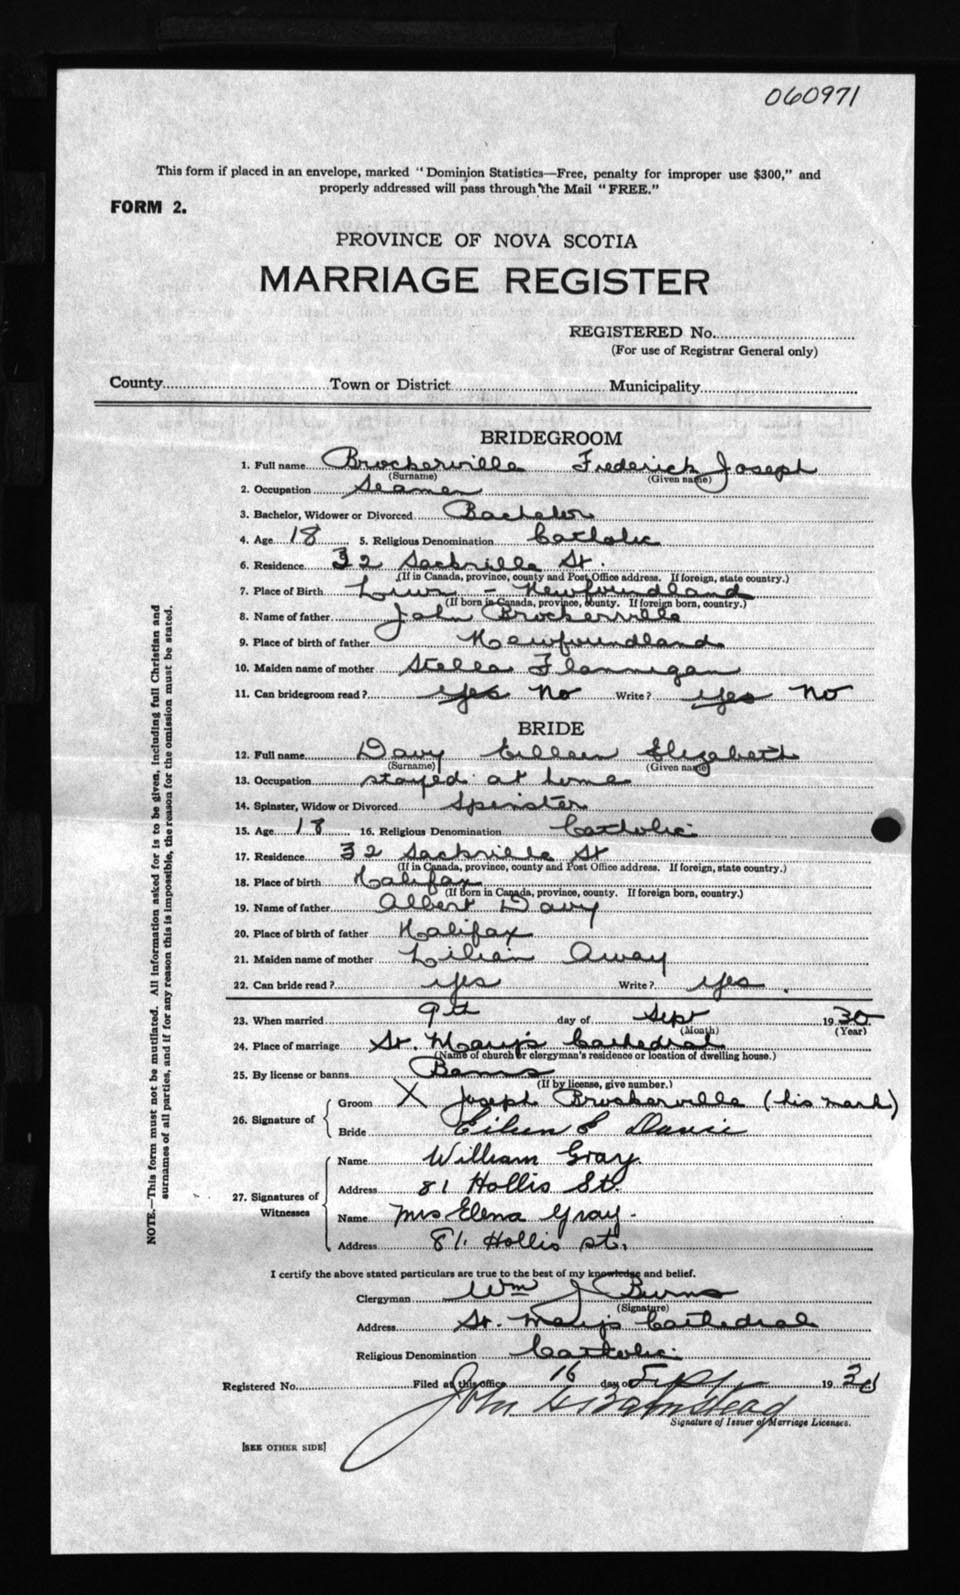 060971
This form if placed in an envelope, marked "Dominion Statistics—Free, penalty for improper use $300," and
properly addressed will pass through the Mail "FREE."
FORM 2.
PROVINCE OF NOVA SCOTIA
MARRIAGE REGISTER
REGISTERED No.
(For use of Registrar General only)
County Town or District Municipality
BRIDEGROOM
1. Full name Brockerville Frederick Joseph
(Surname) (Given name)
2. Occupation Seamen
3. Bachelor, Widower or Divorced Bachelor
4. Age 18 5. Religious Denomination Catholic
6. Residence 32 Sackville St.
(If in Canada, province, county and Post Office address. If foreign, state country.)
7. Place of Birth - Newfoundland
(If born in Canada, province, county. If foreign born, country.)
8. Name of father John Brockerville
9. Place of birth of father Newfoundland
10. Maiden name of mother Stella Flannigan
11. Can bridegroom read? yes No Write? yes No
BRIDE
12. Full name Davy Eileen Elizabeth
(Surname) (Given name)
13. Occupation stayed at home
14. Spinster, Widow or Divorced Spinster
15. Age 18 16. Religious Denomination Catholic
17. Residence 32 Sackville St
(If in Canada, province, county and Post Office address. If foreign, state country.)
18. Place of birth Halifax
(If born in Canada, province, county. If foreign born, country.)
19. Name of father Albert Davy
20. Place of birth of father Halifax
21. Maiden name of mother Lilian Away
22. Can bride read? yes Write? yes.
23. When married 9th day of Sept 1930
(Month) (Year)
24. Place of marriage St. Mary's Cathedral
(Name of church or clergyman's residence or location of dwelling house.)
25. By license or banns Banns
(If by license, give number.)
26. Signature of
Groom X Joseph Brockerville (his mark)
Bride Eileen E Davie
27. Signatures of Witnesses
Name William Gray.
Address 81 Hollis St.
Name Mrs Elena Gray.
Address 81. Hollis st.
I certify the above stated particulars are true to the best of my knowledge and belief.
Clergyman Wm J Burns
(Signature)
Address St. Mary's Cathedral
Religious Denomination Catholic
Registered No. Filed at this office 16 day of Sept 1930
John
Signature of Issuer of Marriage Licenses.
[SEE OTHER SIDE]
NOTE.—This form must not be mutilated. All information asked for is to be given, including full Christian and
surnames of all parties, and if for any reason this is impossible, the reason for the omission must be stated.